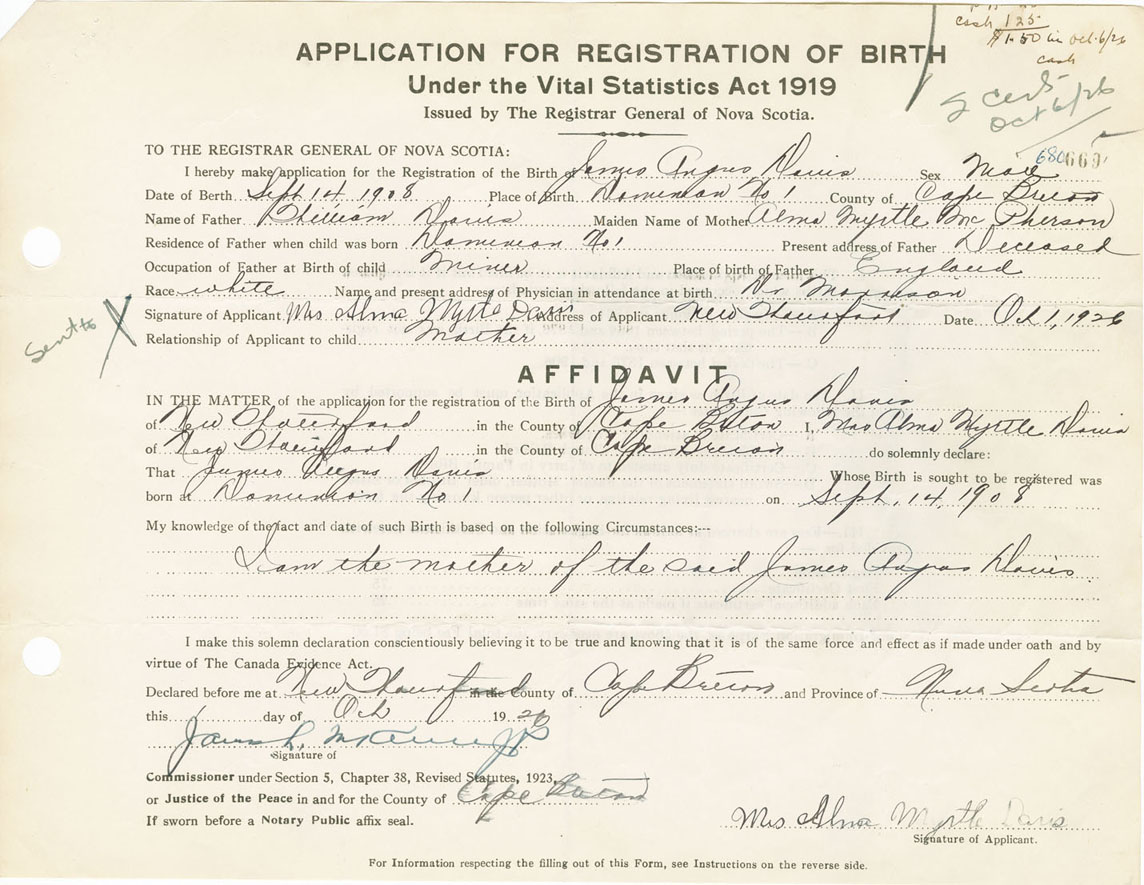 cash 125
$1.50 in Oct. 6/26
cash
2 cert
Oct 6/26
APPLICATION FOR REGISTRATION OF BIRTH
Under the Vital Statistics Act 1919
Issued by The Registrar General of Nova Scotia.
TO THE REGISTRAR GENERAL OF NOVA SCOTIA:
680669
I hereby make application for the Registration of the Birth of James Angus Davis Sex Male
Date of Berth Sept 14 1908 Place of Birth Dominion No 1 County of Cape Breton
Name of Father William Davis Maiden Name of Mother Alma Myrtle McPherson
Residence of Father when child was born Dominion No 1 Present address of Father Deceased
Occupation of Father at Birth of child Miner Place of birth of Father England
Race white Name and present address of Physician in attendance at birth Dr Morrison
Signature of Applicant Mrs Alma Myrtle Davis Address of Applicant New Date Oct 1, 1926
Sent to X
Relationship of Applicant to child Mother
AFFIDAVIT
IN THE MATTER of the application for the registration of the Birth of James Angus Davis
of New in the County of Cape Breton I, Mrs Alma Myrtle Davis
of New in the County of Cape Breton do solemnly declare:
That James Angus Davis Whose Birth is sought to be registered was
born at Dominion No 1 on Sept. 14, 1908
My knowledge of the fact and date of such Birth is based on the following Circumstances:---
I am the mother of the said James Angus Davis
I make this solemn declaration conscientiously believing it to be true and knowing that it is of the same force and effect as if made under oath and by
virtue of The Canada Evidence Act.
Declared before me at New in the County of Cape Breton and Province of Nova Scotia
this 1 day of Oct 1926
JP
Signature of
Commissioner under Section 5, Chapter 38, Revised Statutes, 1923,
or Justice of the Peace in and for the County of Cape Breton
If sworn before a Notary Public affix seal.
Mrs Alma Myrtle Davis
Signature of Applicant.
For Information respecting the filling out of this Form, see Instructions on the reverse side.